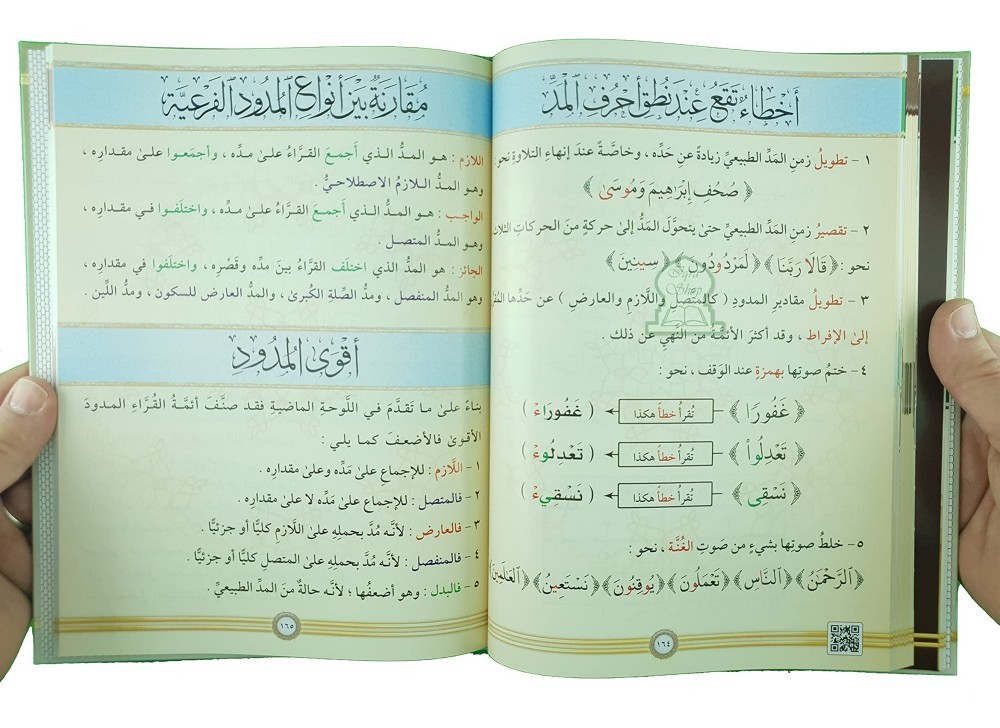 أَخْطَاءٌ تَقَعُ عِنْدَ نُطْقِ أَحْرُفِ الْمَدِّ
١ - تطويلُ زمنِ المَدِّ الطبيعيِّ زيادةً عن حَدِّه ، وخاصَّةً عندَ إنهاءِ التلاوةِ نحو:
﴿ صُحُفِ إِبْرَٰهِيمَ وَمُوسَىٰ ﴾
٢ - تقصيرُ زمنِ المَدِّ الطبيعيِّ حتىٰ يتحوَّلَ المَدُّ إلىٰ حركةٍ منَ الحركاتِ
نحو : ﴿ قَالَا رَبَّنَا ﴾ ﴿ لَمَرْدُودُونَ ﴾ ﴿ سِينِينَ ﴾
٣ - تطويلُ مقاديرِ المدودِ ( كالمتصلِ واللَّازمِ والعارضِ ) عن حَدِّها
إلىٰ الإفراط ، وقد أكثرَ الأئمَّةُ منَ النَّهيِ عن ذلك .
٤ - ختمُ صوتِها بهمزةٍ عند الوَقف ، نحو :
﴿ غَفُورًا ﴾ تُقرأُ خطأً هكذا ( غَفُورَاءْ )
﴿ تَعْدِلُوا۟ ﴾ تُقرأُ خطأً هكذا ( تَعْدِلُوءْ )
﴿ نَسْقِى ﴾ تُقرأُ خطأً هكذا ( نَسْقِيءْ )
٥ - خلطُ صوتِها بشيءٍ من صَوتِ الغُنَّة ، نحو :
﴿ الرَّحْمَٰنُ ﴾ ﴿ النَّاسِ ﴾ ﴿ تَعْمَلُونَ ﴾ ﴿ يُوقِنُونَ ﴾ ﴿ نَسْتَعِينُ ﴾ ﴿ الْعَٰلَمِينَ
١٦٤
مُقَارَنَةٌ بَيْنَ أَنْوَاعِ الْمُدُودِ الْفَرْعِيَّةِ
اللازم : هـو المـدُّ الـذي أَجمـعَ القـرَّاءُ علـىٰ مـدِّه ، وأجمَعـوا علـىٰ مقدارِه ،
وهـو المـدُّ الـلازمُ الاصطلاحـيُّ .
الواجـب : هـو المـدُّ الـذي أَجمـعَ القـرَّاءُ علـىٰ مـدِّه ، واختلَفـوا فـي مقدارِه ،
وهـو المَـدُّ المتصـل .
الجائز : هو المَدُّ الذي اختلَفَ القرَّاءُ بينَ مدِّه وقَصْرِه ، واختلَفوا في مقدارِه ،
وهو المَدُّ المنفصل ، ومدُّ الصِّلةِ الكُبرىٰ ، والمدُّ العارض للسكون ، ومدُّ اللِّين .
أَقْوَى الْمُدُودِ
بناءً علىٰ ما تَقدَّمَ في اللَّوحةِ الماضيةِ فقد صنَّفَ أئمَّةُ القُرَّاءِ المدودَ
الأقوىٰ فالأضعفَ كما يلي :
١ - اللَّازم : للإجماعِ علىٰ مَدِّه وعلىٰ مقدارِه .
٢ - فالمتصل : للإجماعِ علىٰ مَدِّه لا علىٰ مقدارِه .
٣ - فالعارض : لأنَّه مُدَّ بحملِه علىٰ اللَّازمِ كليًّا أو جزئيًّا .
٤ - فالمنفصل : لأنَّه مُدَّ بحملِه علىٰ المتصلِ كليًّا أو جزئيًّا .
٥ - فالبدل : وهو أضعفُها ؛ لأنَّه حالةٌ منَ المدِّ الطبيعيِّ .
١٦٥